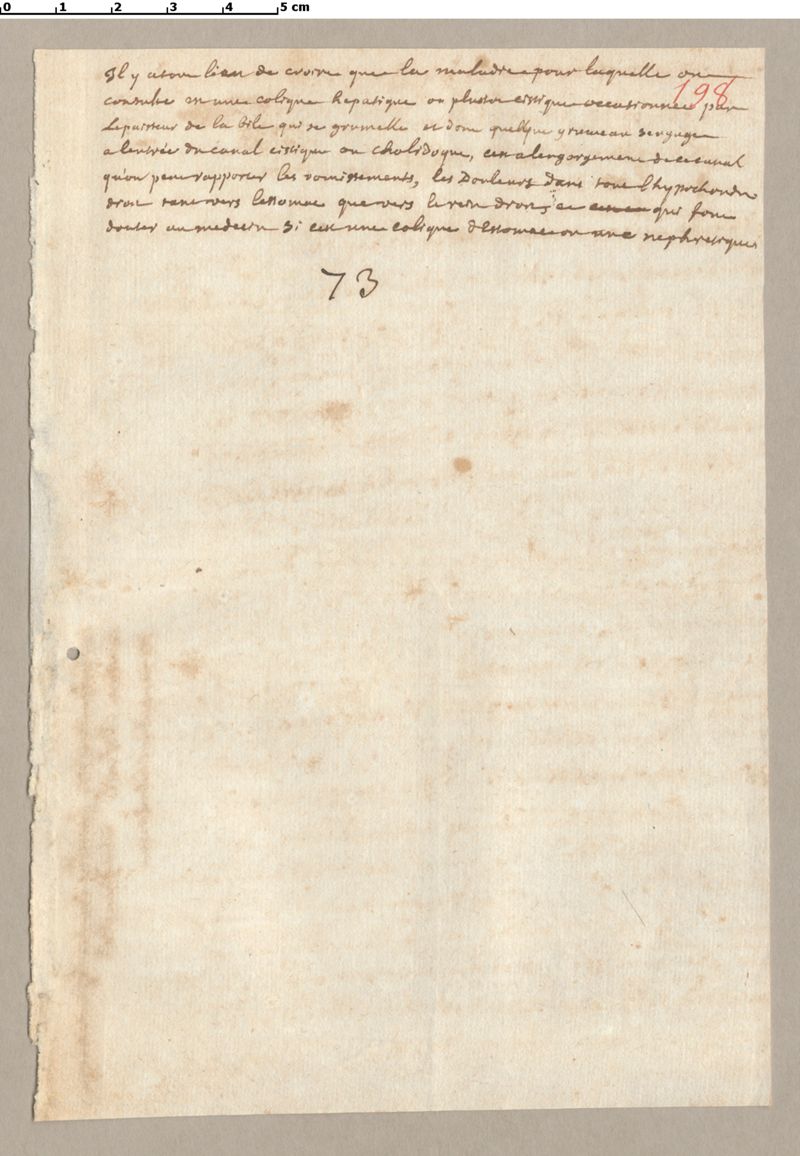 0 1 2 3 4 5 cm
198
Il y a tout lieu de croire que la maladie pour laquelle on
consulte est une colique hepatique ou plustot cistique occasionnée par
Lepaisseur de la bile qui se grumelle et dont quelque grumeau sengage
a lentrée du canal cistique ou cholidoque, cest a lengorgement de ce canal
qu'on peut rapporter les vomissements, les Douleurs dans tout lhypochondre
droit tant vers lestomac que vers le rein droit, ce qui font
douter au medecin si cest une colique d'Estomac ou une nephretique
73